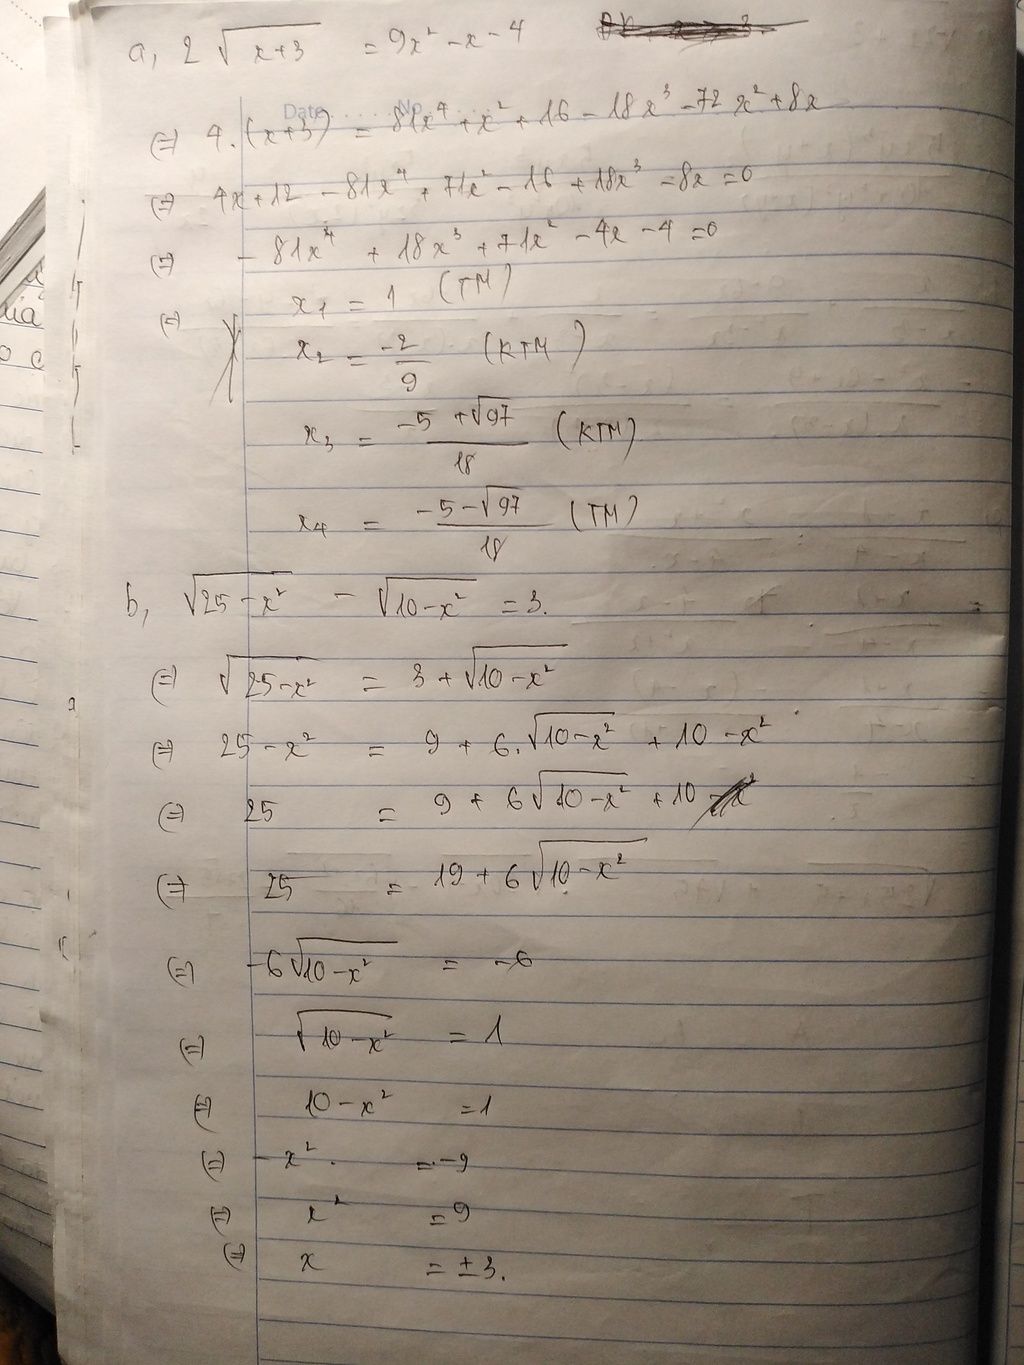 a, 2√(x+3) = 9x² - x - 4
Date No
(=) 4.(x+3) = 81x⁴ + x² + 16 - 18x³ - 72x² + 8x
(=) 4x + 12 - 81x⁴ + 71x² - 16 + 18x³ - 8x = 0
(=) - 81x⁴ + 18x³ + 71x² - 4x - 4 = 0
(=) x₁ = 1 (TM)
x₂ = -2/9 (KTM)
x₃ = (-5 + √97)/18 (KTM)
x₄ = (-5 - √97)/18 (TM)
b, √(25 - x²) - √(10 - x²) = 3.
(=) √(25 - x²) = 3 + √(10 - x²)
(=) 25 - x² = 9 + 6.√(10 - x²) + 10 - x²
(=) 25 = 9 + 6√(10 - x²) + 10
(=) 25 = 19 + 6√(10 - x²)
(=) -6√(10 - x²) = -6
(=) √(10 - x²) = 1
(=) 10 - x² = 1
(=) - x² = -9
(=) x² = 9
(=) x = ±3.